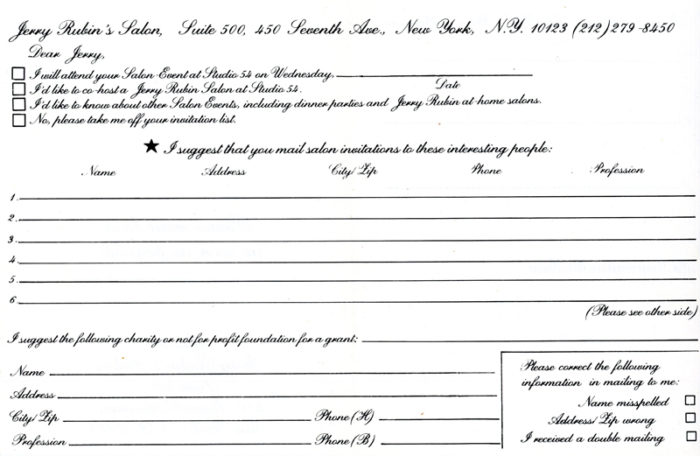 Jerry Rubin's Salon, Suite 500, 450 Seventh Ave., New York, N.Y. 10123 (212) 279-8450
Dear Jerry,
I will attend your Salon Event at Studio 54 on Wednesday,
Date
I'd like to co-host a Jerry Rubin Salon at Studio 54.
I'd like to know about other Salon Events, including dinner parties and Jerry Rubin at-home salons.
No, please take me off your invitation list.
★ I suggest that you mail salon invitations to these interesting people:
Name Address City/Zip Phone Profession
1.
2.
3.
4.
5.
6.
(Please see other side)
I suggest the following charity or not for profit foundation for a grant:
Name
Address
City/Zip Phone (H)
Profession Phone (B)
Please correct the following
information in mailing to me:
Name misspelled
Address/Zip wrong
I received a double mailing